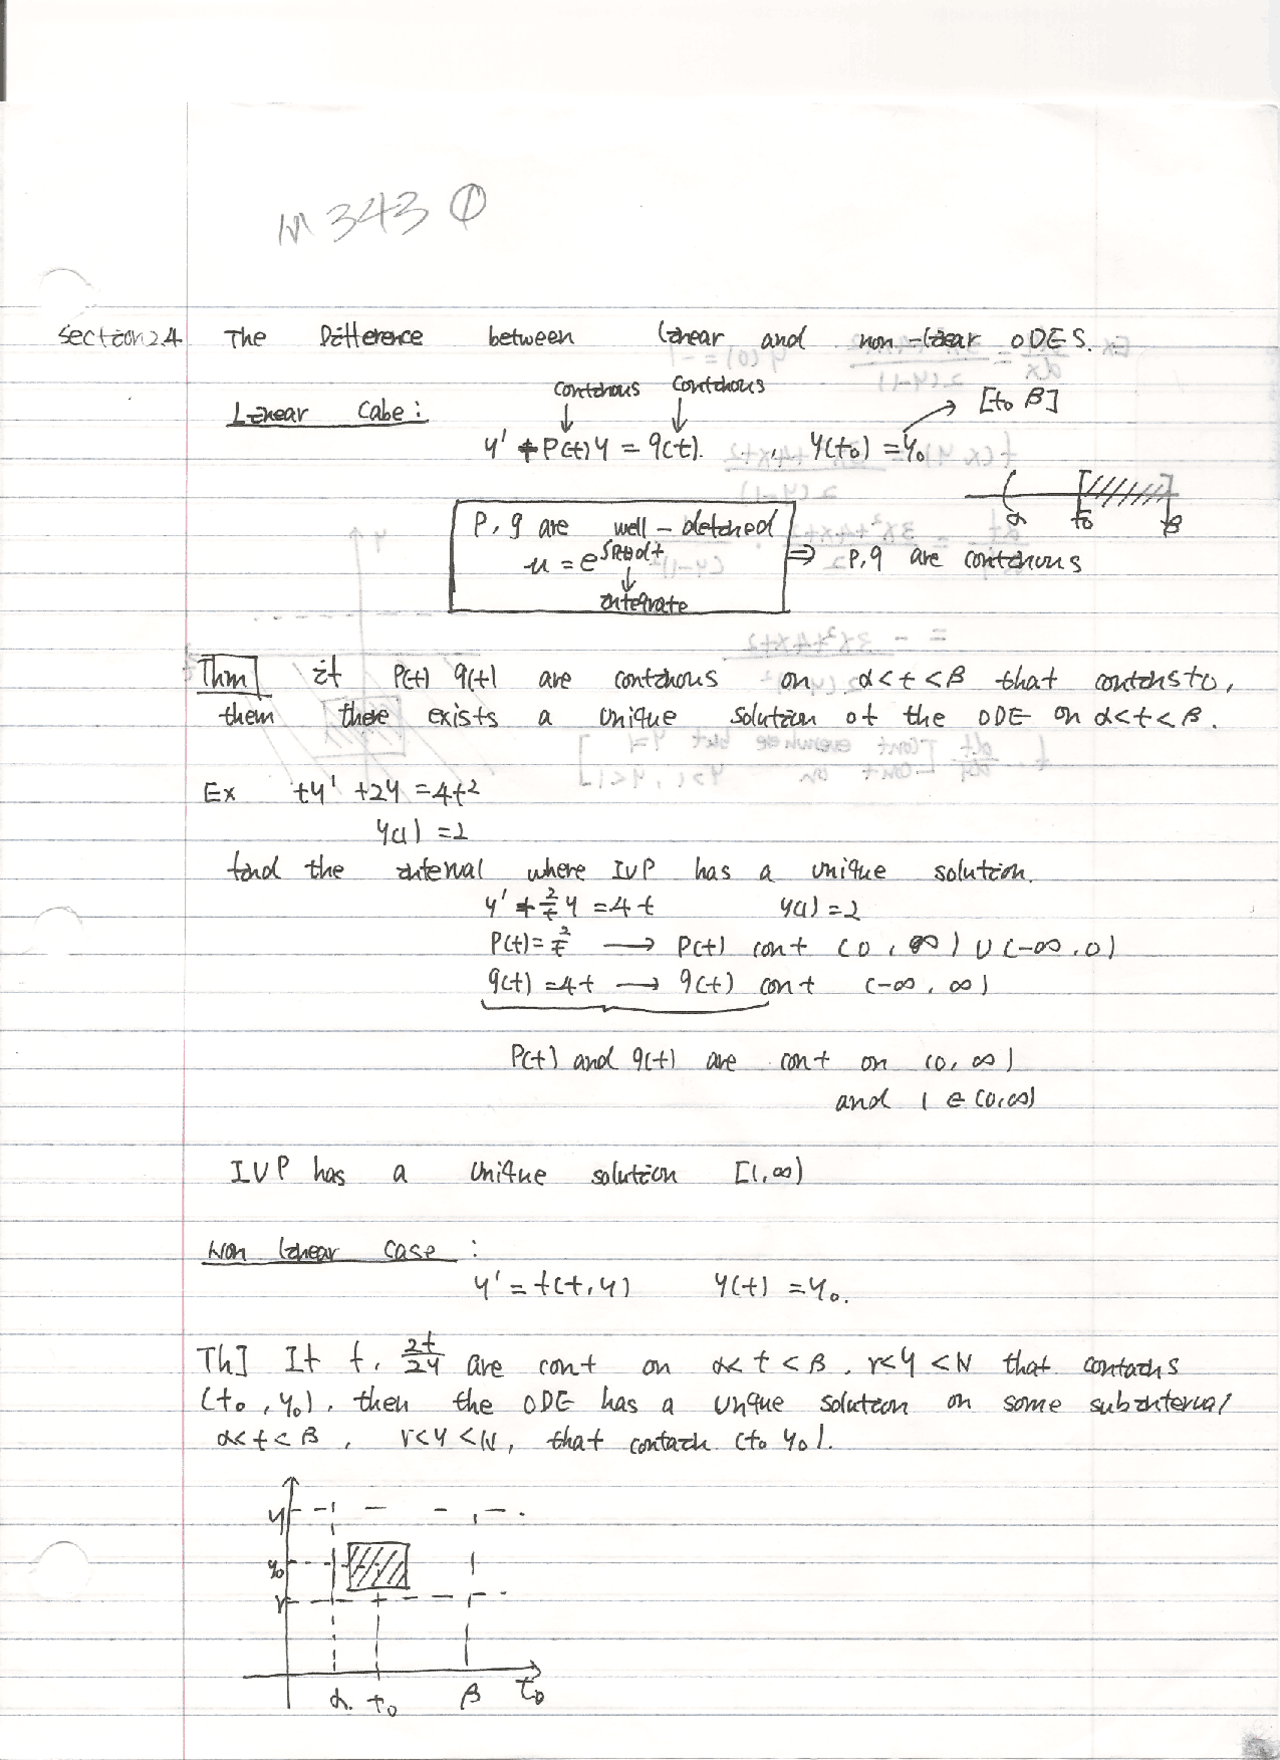 M343 ①
Section 2.4 The Difference between linear and non-linear ODES.
continous continous [t₀ β]
Linear Case:
y' + P(t)y = q(t). , y(t₀) = y₀
α t₀ β
P, q are well-defined
u = e^∫P(t)dt ⇒ P, q are continous
↓
integrate
Thm] if P(t) q(t) are continous on α<t<β that contains t₀,
them there exists a unique solution of the ODE on α<t<β.
Ex ty' + 2y = 4t²
y(1) = 2
find the interval where IVP has a unique solution.
y' + 2/t y = 4t y(1) = 2
P(t) = 2/t → P(t) cont (0, ∞) ∪ (-∞, 0)
q(t) = 4t → q(t) cont (-∞, ∞)
P(t) and q(t) are cont on (0, ∞)
and 1 ∈ (0, ∞)
IVP has a unique solution [1, ∞)
Non linear case:
y' = f(t, y) y(t) = y₀.
Th] If f, ∂f/∂y are cont on α< t < β, r<y<N that contains
(t₀, y₀), then the ODE has a unique solution on some subinterval
α<t<β, r<y<N, that contain (t₀ y₀).
y
y₀
r
α. t₀ β t₀